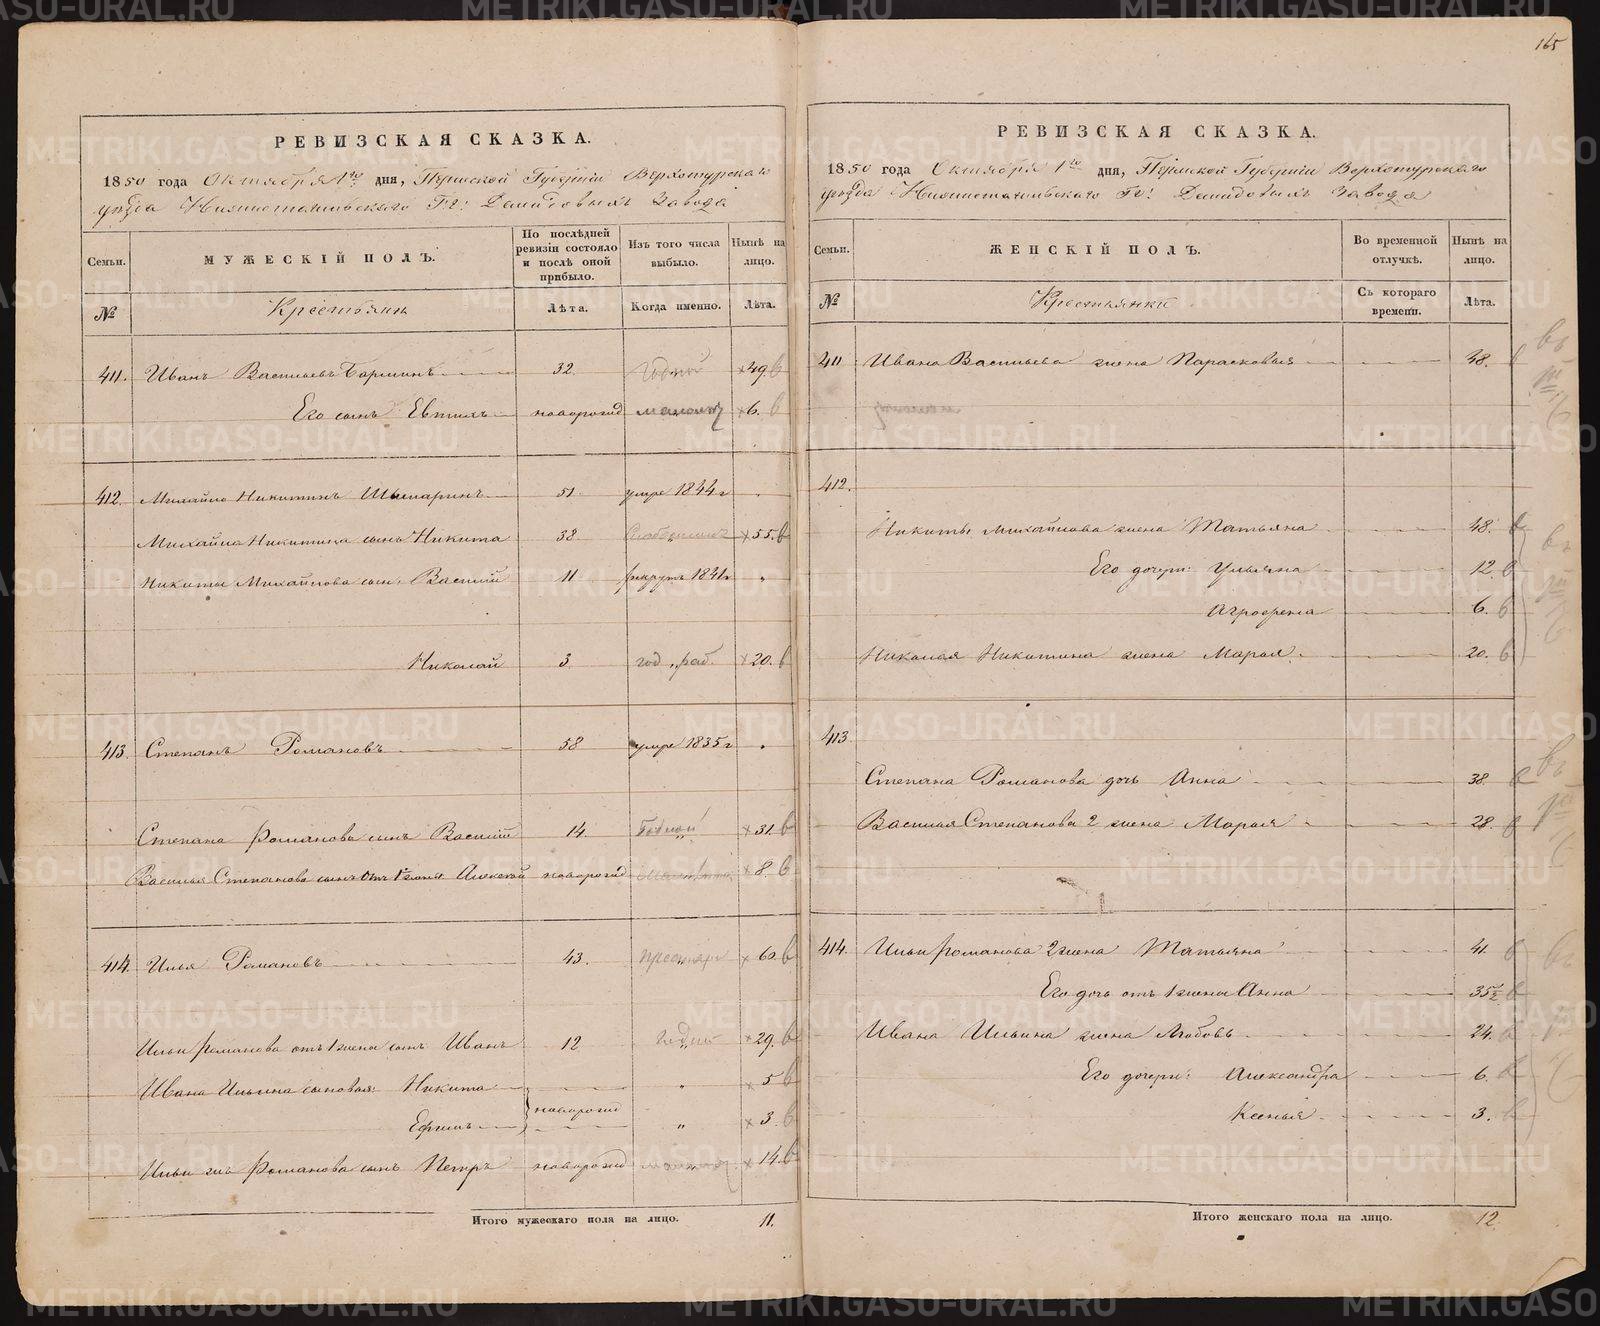 165
РЕВИЗСКАЯ СКАЗКА.
1850 года Октября 1го дня, Пермской Губерніи Верхотурскаго
уѣзда Нижнетагильскаго Гг: Демидовыхъ Завода
Семьи.
МУЖЕСКІЙ ПОЛЪ.
По послѣдней ревизіи состояло и послѣ оной прибыло.
Изъ того числа выбыло.
Нынѣ на лицо.
№
Крестьяне
Лѣта.
Когда именно.
Лѣта.
411. Иванъ Васильевъ 32. Годной 49. в
Его сынъ Евтихъ новорожд малолет 6. в
412. Михайло Никитинъ 51. умре 1844 г
Михайла Никитина сынъ Никита 38 55. в
Никиты Михайлова сын: Василій 11 рекрутъ 1841 г
Николай 3 год. раб. 20. в
413. Степанъ Романовъ 58 умре 1835 г
Степана Романова сынъ Василій 14. Годной 31. в
Василья Степанова сынъ отъ 1 жены Алексѣй новорожд 8. в
414. Илья Романовъ 43. престар 60. в
Ильи Романова отъ 1 жены сынъ Иванъ 12 Годной 29. в
Ивана Ильина сыновья: Никита 5 в
новорожд
Ефимъ „ 3. в
Ильи же Романова сынъ Петръ новорожд малолет 14. в
Итого мужескаго пола на лицо. 11.
РЕВИЗСКАЯ СКАЗКА.
1850 года Октября 1го дня, Пермской Губерніи Верхотурскаго
уѣзда Нижнетагильскаго Гг: Демидовыхъ Завода
Семьи.
ЖЕНСКІЙ ПОЛЪ.
Во временной отлучкѣ.
Нынѣ на лицо.
№
Крестьянки
Съ котораго времени.
Лѣта.
411 Ивана Васильева жена Парасковья 48. в
412.
Никиты Михайлова жена Татьяна 48. в
Его дочери: Ульяна 12. в
Агрофена 6. в
Николая Никитина жена Марья 20. в
413
Степана Романова дочь Анна 38. в
Василья Степанова 2 жена Марья 28. в
414. Ильи Романова 2 жена Татьяна 41. в
Его дочь отъ 1 жены Анна 35½ в
Ивана Ильина жена Любовь 24. в
Его дочери: Александра 6. в
Ксенья 3. в
Итого женскаго пола на лицо. 12.
METRIKI.GASO-URAL.RU